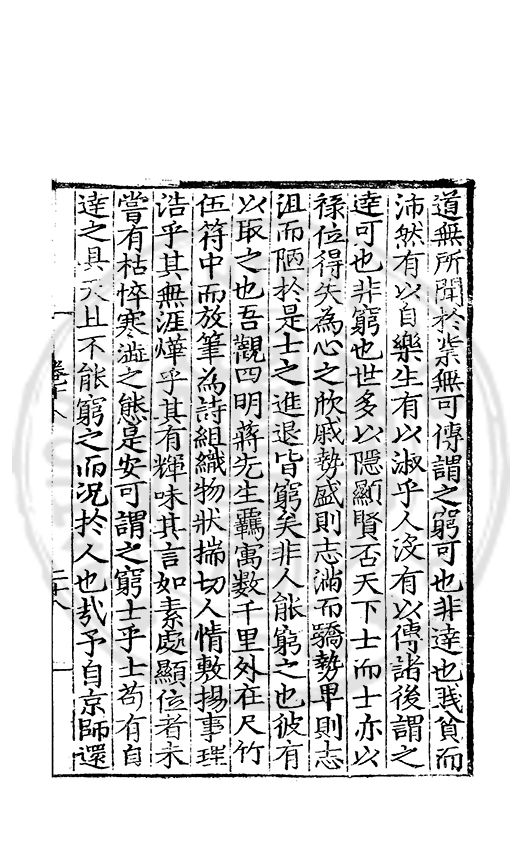 道無所聞於業無可傳謂之窮可也非達也賤貧而
沛然有以自樂生有以淑乎人沒有以傳諸後謂之
達可也非窮也世多以隱顯賢否天下士而士亦以
祿位得失為心之欣戚勢盛則志滿而驕勢卑則志
沮而陋於是士之進退皆窮矣非人能窮之也彼有
以取之也吾觀四明蔣先生羈寓數千里外在尺竹
伍符中而放筆為詩組織物狀揣切人情敷揚事理
浩乎其無涯燁乎其有輝味其言如素處顯位者未
嘗有枯悴寒澁之態是安可謂之窮士乎士苟有自
達之具天且不能窮之而況於人也哉予自京師還
卷十八
二十八